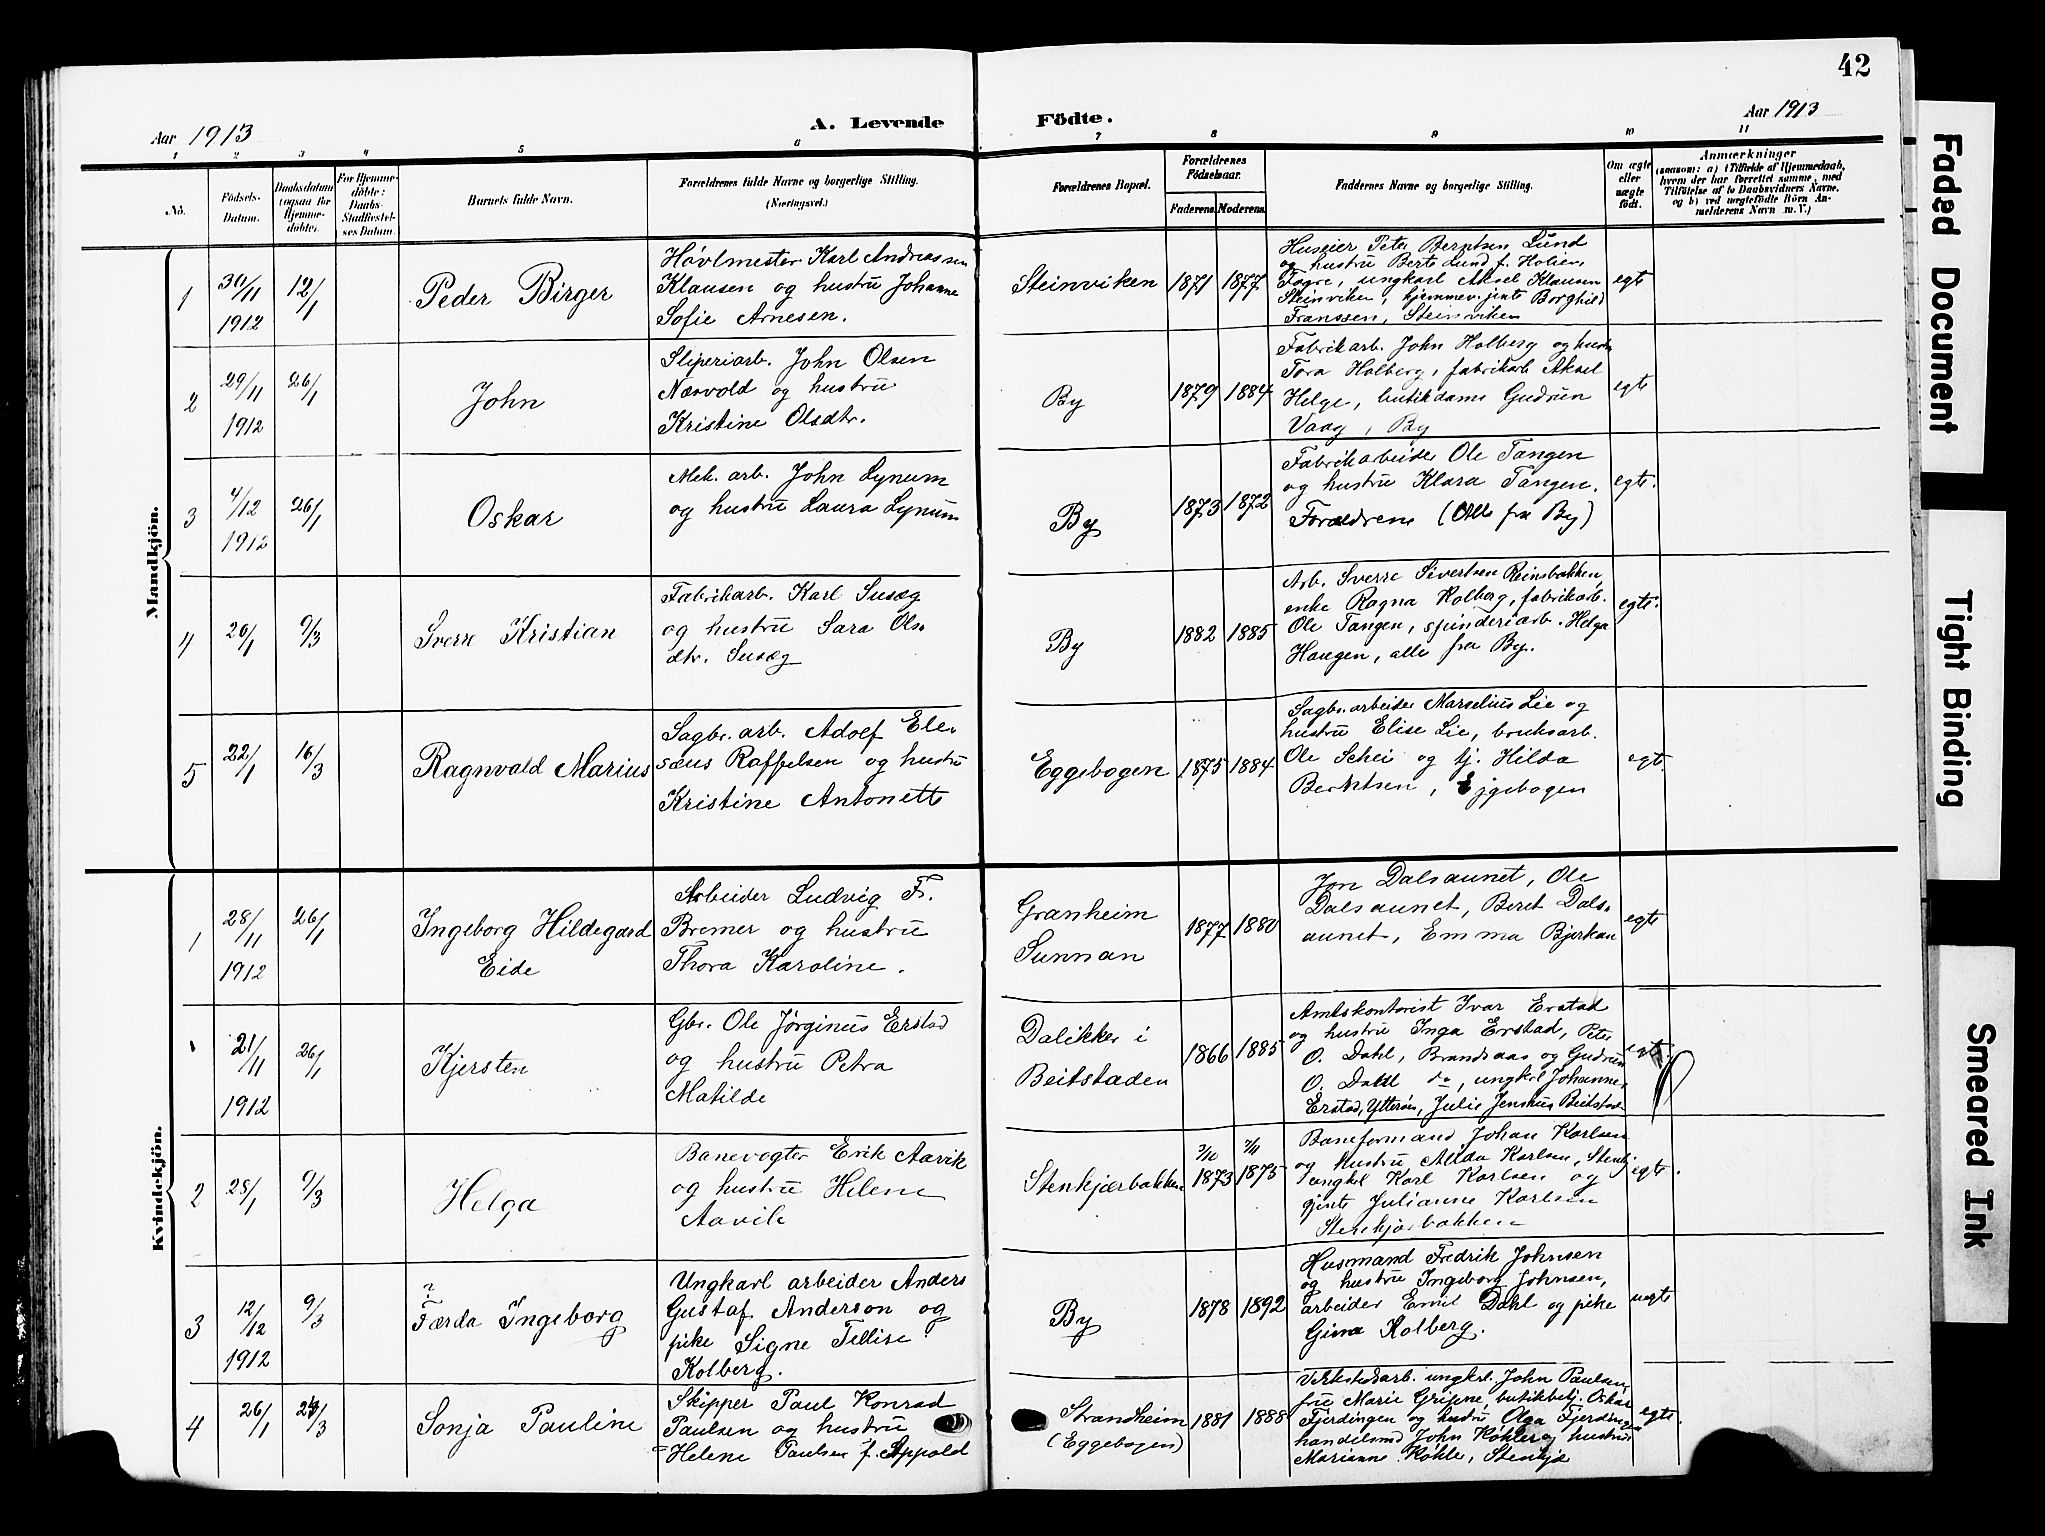 42
Aar 1913
A. Levende Födte.
Aar 1913
1 2 3 4 5 6 7 8 9 10 11
No.
Födsels-
Datum.
Daabsdatum
(ogsaa for
Hjemme-
döbte).
For Hjemme-
döbte:
Daabs-
Stadfæstel-
ses Datum.
Barnets fulde Navn.
Forældrenes fulde Navne og borgerlige Stilling.
(Næringsvei.)
Forældrenes Bopæl.
Forældrenes
Födselsaar.
Faderens. Moderens.
Faddernes Navne og borgerlige Stilling.
Om ægte
eller
uægte
födt.
Anmærkninger
(saasom: a) i Tilfælde af Hjemmedaab,
hvem der har forrettet samme, med
Tilföielse af to Daabsvidners Navne,
og b) ved uægtefödte Börn An-
melderens Navn m. V.)
Mandkjön.
1
30/11
1912
12/1
Peder Birger
Høvlmester Karl Andreassen
Klausen og hustru Johanne
Sofie Arnesen.
Steinviken
1871 1877
Huseier Peter Berntsen Lund
og hustru Berte Lund f. Holien,
Fagre, ungkarl Aksel Klausen
Steinviken, hjemmev. jente Borghild
Franssen, Steinviken
egte
2
29/11
1912
26/1
John
Sliperiarb. John Olsen
Næsvold og hustru
Kristine Olsdtr.
By
1879 1884
Fabrikarb. John Holberg og hustru
Tora Holberg, fabrikarb Aksel
Helge, butikdame Gudrun
Vaag, By
egte
3
4/12
1912
26/1
Oskar
Mek. arb. John Lynum
og hustru Laura Lynum
By
1873 1872
Fabrikarbeider Ole Tangen
og hustru Klara Tangen.
Forældrene (Alle fra By)
egte.
4
26/1
9/3
Sverre Kristian
Fabrikarb. Karl Susæg
og hustru Sara Ols-
dtr. Susæg
By
1882 1885
Arb. Sverre Sivertsen Reinsbakken,
enke Ragna Kolberg, fabrikarb.
Ole Tangen, spinderiarb. Helga
Haugen, alle fra By.
egte.
5
22/1
16/3
Ragnvald Marius
Sagbr. arb. Adolf Ele-
sæus Raffelsen og hustru
Kristine Antonette
Eggebogen
1875 1884
Sagbr. arbeider Marselius Lie og
hustru Elise Lie, bruksarb.
Ole Schei og tj. Hilda
Berntsen, Eggebogen
egte.
Kvindekjön.
1
28/11
1912
26/1
Ingeborg Hildegard
Eide
Arbeider Ludvig Fr.
Bremer og hustru
Thora Karoline.
Granheim
Sunnan
1877 1880
Jon Dalsaunet, Ole
Dalsaunet, Beret Dals-
aunet, Emma Bjerkan
egte
21/11
1912
26/1
Kjersten
Gbr. Ole Jørginus Erstad
og hustru Petra
Matilde
Dalikker i
Beitstaden
1866 1885
Amtskontorist Ivar Erstad
og hustru Inga Erstad, Peter
O. Dahl, Brandsaas og Gudrun
O. Dahl do, ungkl Johannes
Erstad, Ytterøen, Julie Jenshus Beitstad
egte.
2
28/1
9/3
Helga
Banevogter Erik Aavik
og hustru Helene
Aavik
Stenkjærbakken
1873 1875
Baneformand Johan Karlsen
og hustru Alida Karlsen, Stenkj.
ungkl Karl Karlsen og
pjente Julianne Karlsen
Stenkjærbakken
egte.
3
12/12
1912
9/3
?
Færda Ingeborg
Ungkarl arbeider Anders
Gustaf Anderson og
pike Signe Tellise
Kolberg.
By
1878 1892
Husmand Fredrik Johnsen
og hustru Ingeborg Johnsen,
arbeider Emil Dahl og pike
Gina Kolberg.
uegte
4
26/1
24/3
Sonja Pauline
Skipper Paul Konrad
Paulsen og hustru
Helene Paulsen f. Appold
Strandheim
(Eggebogen)
1881 1888
Verkstedsarb. ungkrl. John Paulsen,
frue Marie Grippe, butikbetj. Oskar
Fjerdingen og hustru Olga Fjerdingen
handelsmd John Køhler og hustru
Marianne Køhler, Stenkjær
egte.
Faded Document
Tight Binding
Smeared Ink